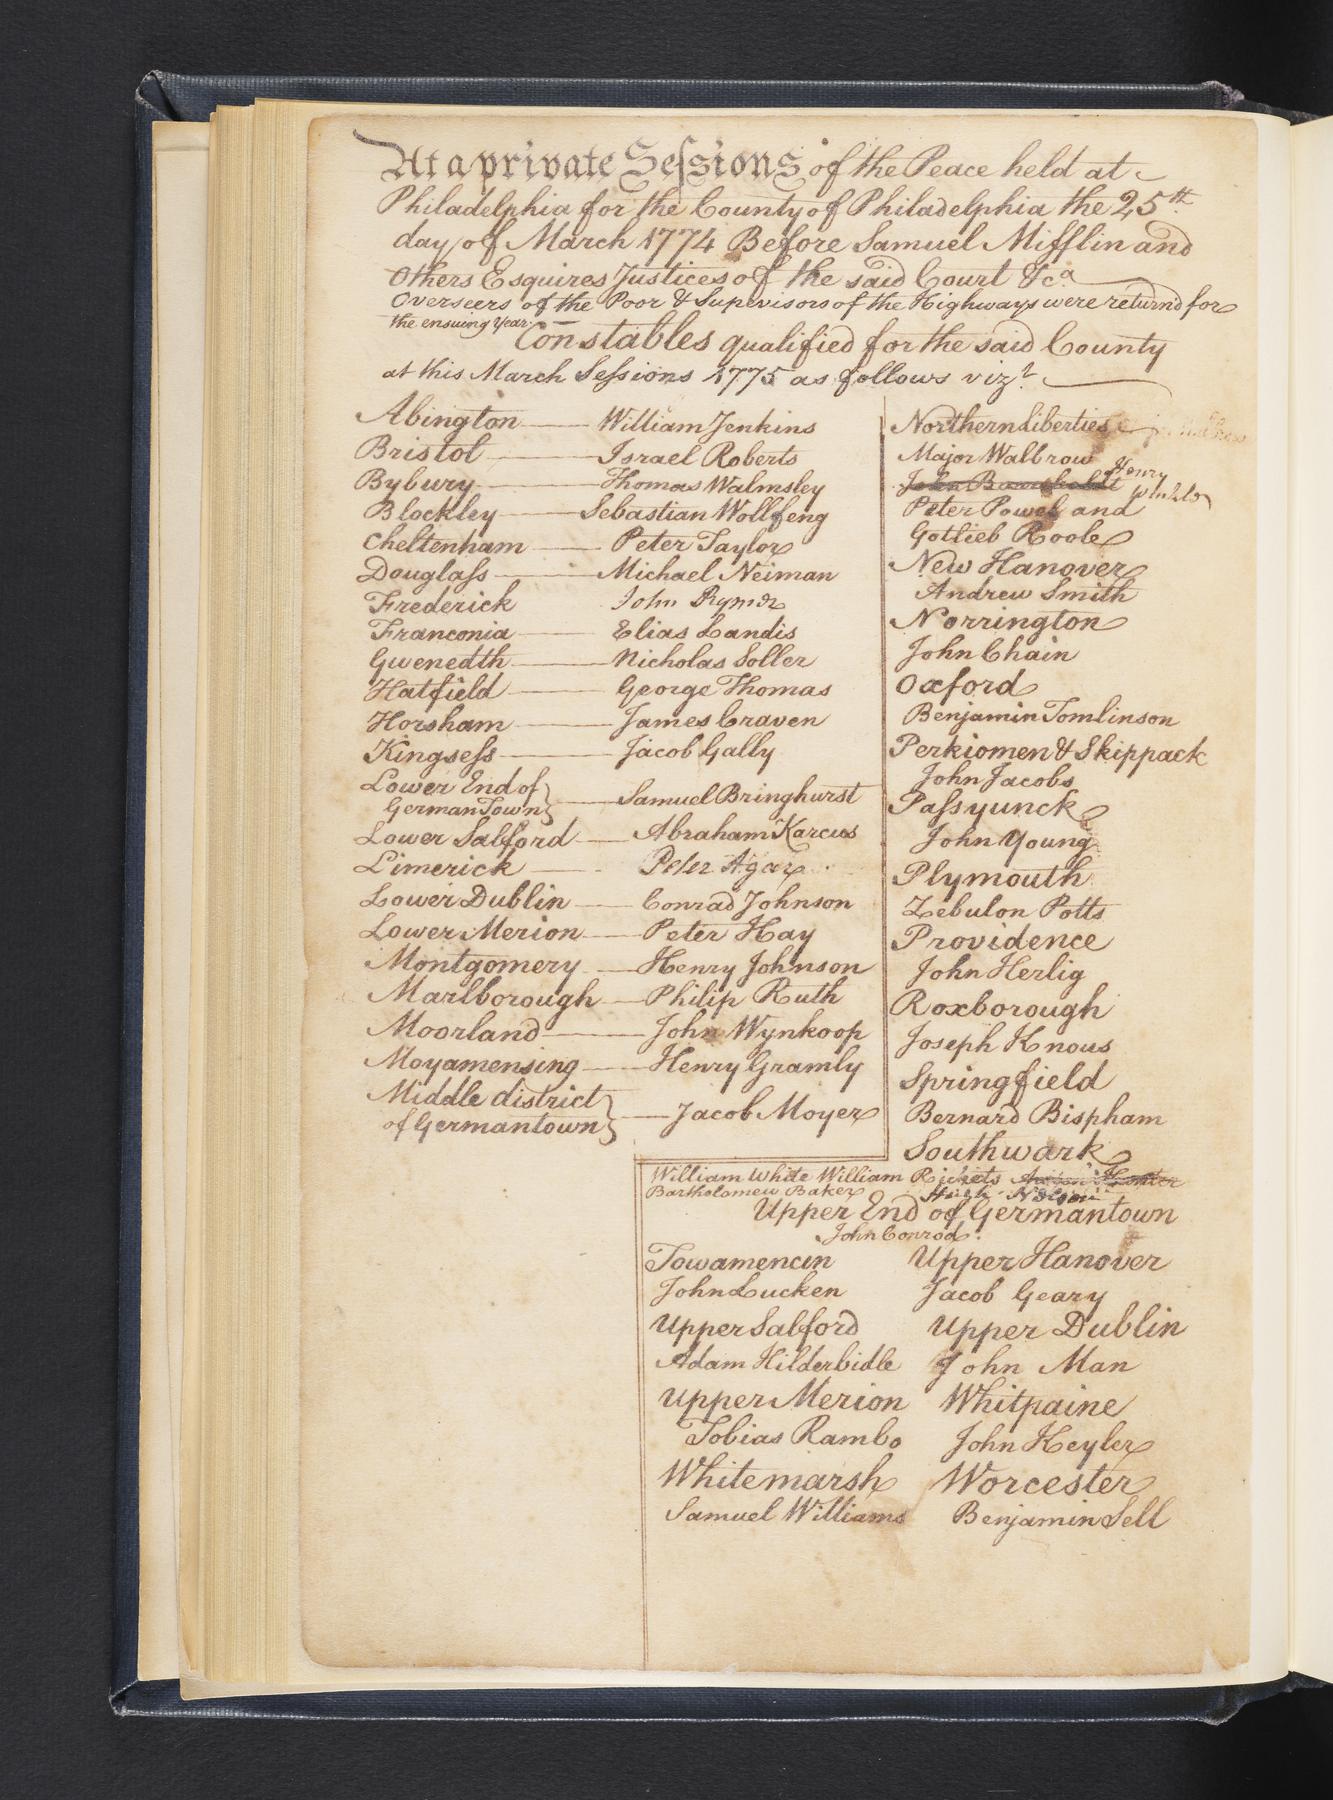 At a private Sessions of the Peace held at
Philadelphia for the County of Philadelphia the 25th
day of March 1774 Before Samuel Mifflin and
others Esquires Justices of the said Court &ca
Overseers of the Poor & Supervisors of the Highways were returnd for
the ensuing Year.
Constables qualified for the said County
at this March Sessions 1775 as follows vizt
Abington William Jenkins
Bristol Israel Roberts
Bybury Thomas Walmsley
Blockley Sebastian Wollfeng
Cheltenham Peter Taylor
Douglass Michael Neiman
Frederick John Rymer
Franconia Elias Landis
Gwenedth Nicholas Soller
Hatfield George Thomas
Horsham James Craven
Kingsess Jacob Gally
Lower End of
GermanTown Samuel Bringhurst
Lower Salford Abraham Karcus
Limerick Peter Agar
Lower Dublin Conrad Johnson
Lower Merion Peter Hay
Montgomery Henry Johnson
Marlborough Philip Ruth
Moorland John Wynkoop
Moyamensing Henry Gramly
Middle district
of Germantown Jacob Moyer
Northern Liberties
Major Walbrow
John Henry
Peter Powel and
Gotlieb Roole
New Hanover
Andrew Smith
Norrington
John Chain
Oxford
Benjamin Tomlinson
Perkiomen & Skippack
John Jacobs
Passyunck
John Young
Plymouth
Zebulon Potts
Providence
John Herlig
Roxborough
Joseph Knous
Springfield
Bernard Bispham
Southwark
William White William Rickets
Bartholomew Baker Hugh Nelson
Upper End of Germantown
John Conrod.
Towamencin
John Lucken
Upper Salford
Adam Hilderbidle
Upper Merion
Tobias Rambo
Whitemarsh
Samuel Williams
Upper Hanover
Jacob Geary
Upper Dublin
John Man
Whitpaine
John Keyler
Worcester
Benjamin Sell